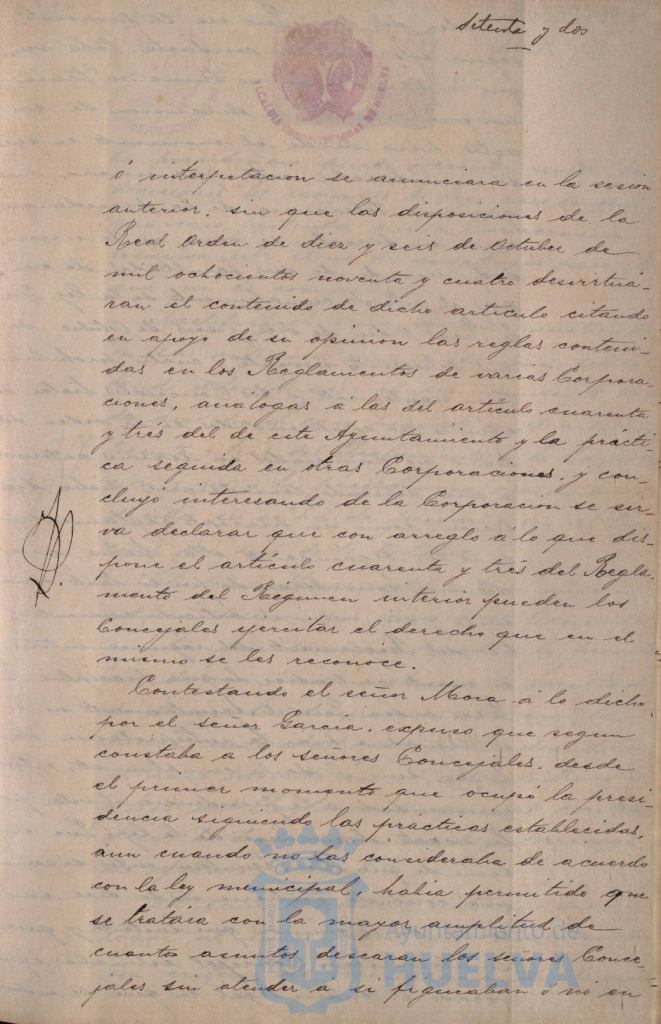 Setenta y dos
ALCALDIA CONSTITUCIONAL DE HUELVA
ó interpretacion se anunciara en la sesion
anterior, sin que las disposiciones de la
Real Orden de diez y seis de Octubre de
mil ochocientos noventa y cuatro desvirtuá-
ran el contenido de dicho articulo citando
en apoyo de su opinion las reglas conteni-
das en los Reglamentos de varias Corpora-
ciones, análogas á las del artículo cuarenta
y trés del de este Ayuntamiento y la prácti-
ca seguida en otras Corporaciones, y con-
cluyó interesando de la Corporacion se sir-
va declarar que con arreglo á lo que dis-
pone el artículo cuarenta y trés del Regla-
mento del Régimen interior pueden los
Concejales ejercitar el derecho que en el
mismo se les reconoce.
Contestando el señor Mora á lo dicho
por el señor Garcia, expuso que segun
constaba a los señores Concejales, desde
el primer momento que ocupó la presi-
dencia siguiendo las prácticas establecidas,
aun cuando no las consideraba de acuerdo
con la ley municipal, habia permitido que
se tratára con la mayor amplitud de
cuantos asuntos desearan los señores Conce-
jales sin atender a si figuraban ó nó en
Ayuntamiento de
HUELVA